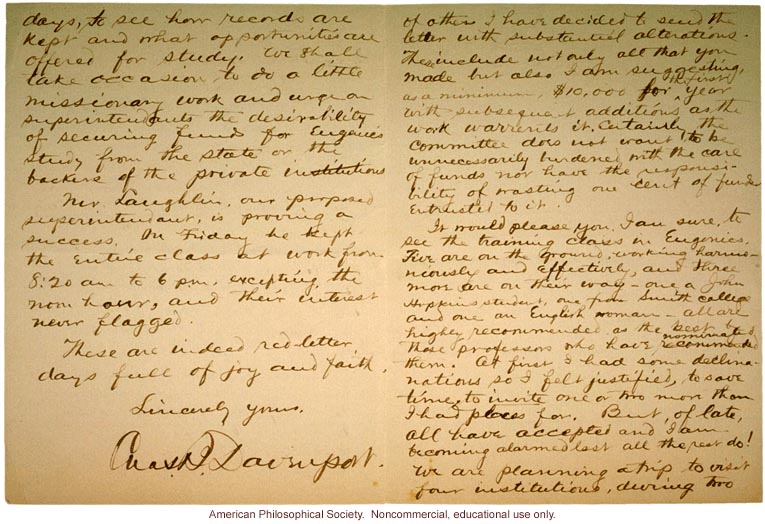 days, to see how records are
kept and what opportunities are
offered for study. We shall
take occasion to do a little
missionary work and urge on
superintendents the desirability
of securing funds for Eugenics
study from the state or the
backers of the private institutions
Mr. Laughlin, our proposed
superintendant, is proving a
success. On Friday he kept
the entire class at work from
8:20 am to 6 pm, excepting the
noon hour, and their interest
never flagged.
These are indeed red-letter
days full of joy and faith.
Sincerely yours.
Chas. B. Davenport.
of others I have decided to send the
letter with substantial alterations.
These include not only all that you
made but also I am suggesting,
as a minimum, $10,000 for the first year
with subsequent additions as the
work warrents it. Certainly the
committee does not want to be
unnecessarily burdened with the care
of funds nor have the responsi-
bility of wasting one cent of funds
entrusted to it.
It would please you, I am sure, to
see the training class in Eugenics.
Five are on the ground, working harmo-
niously and effectively, and three
more are on their way - one a John
Hopkins student, one from Smith college
and one an English woman - all are
highly recommended as the best by
those professors who have nominated recommended
them. At first I had some declina-
nations so I felt justified, to save
time, to invite one or two more than
I had places for. But, of late,
all have accepted and I am
becoming alarmed lest all the rest do!
We are planning a trip to visit
four institutions, during two
American Philosophical Society. Noncommercial, educational use only.